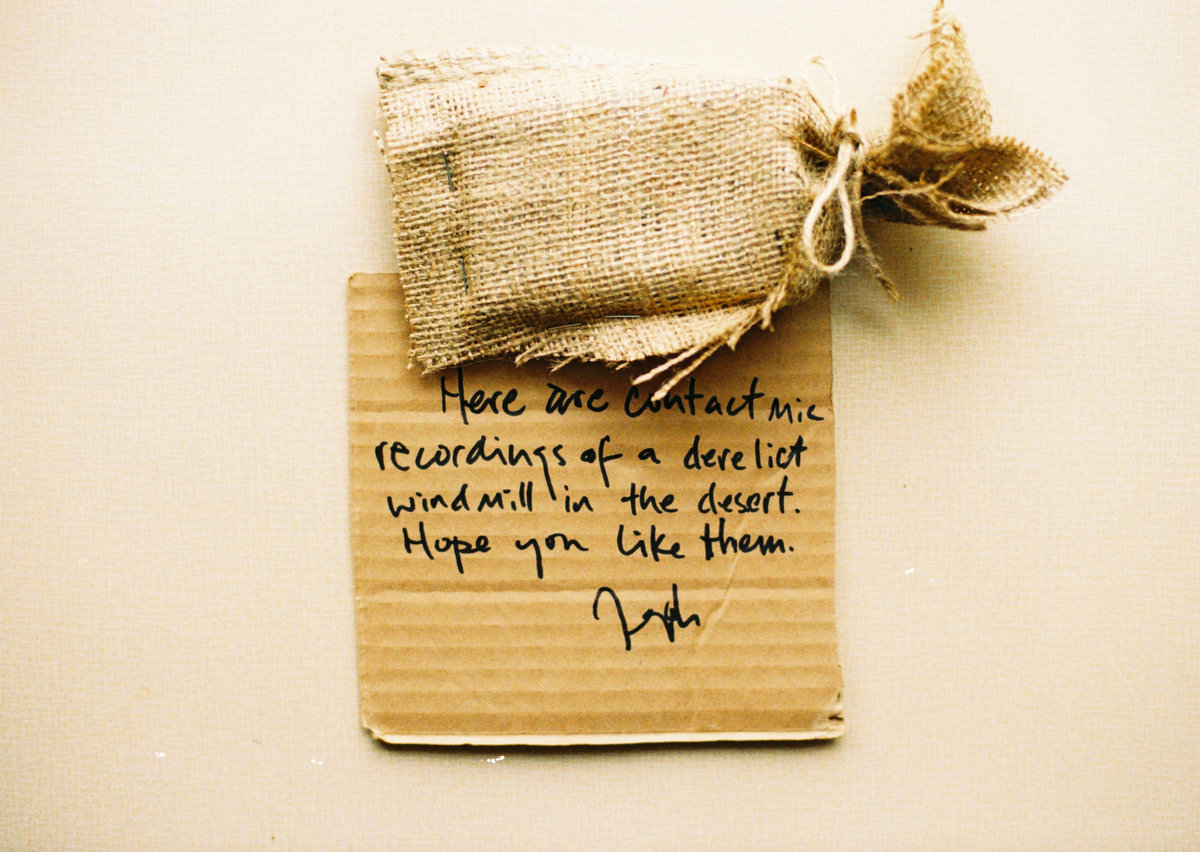 Here are contact mic
recordings of a derelict
windmill in the desert.
Hope you like them.
Joseph